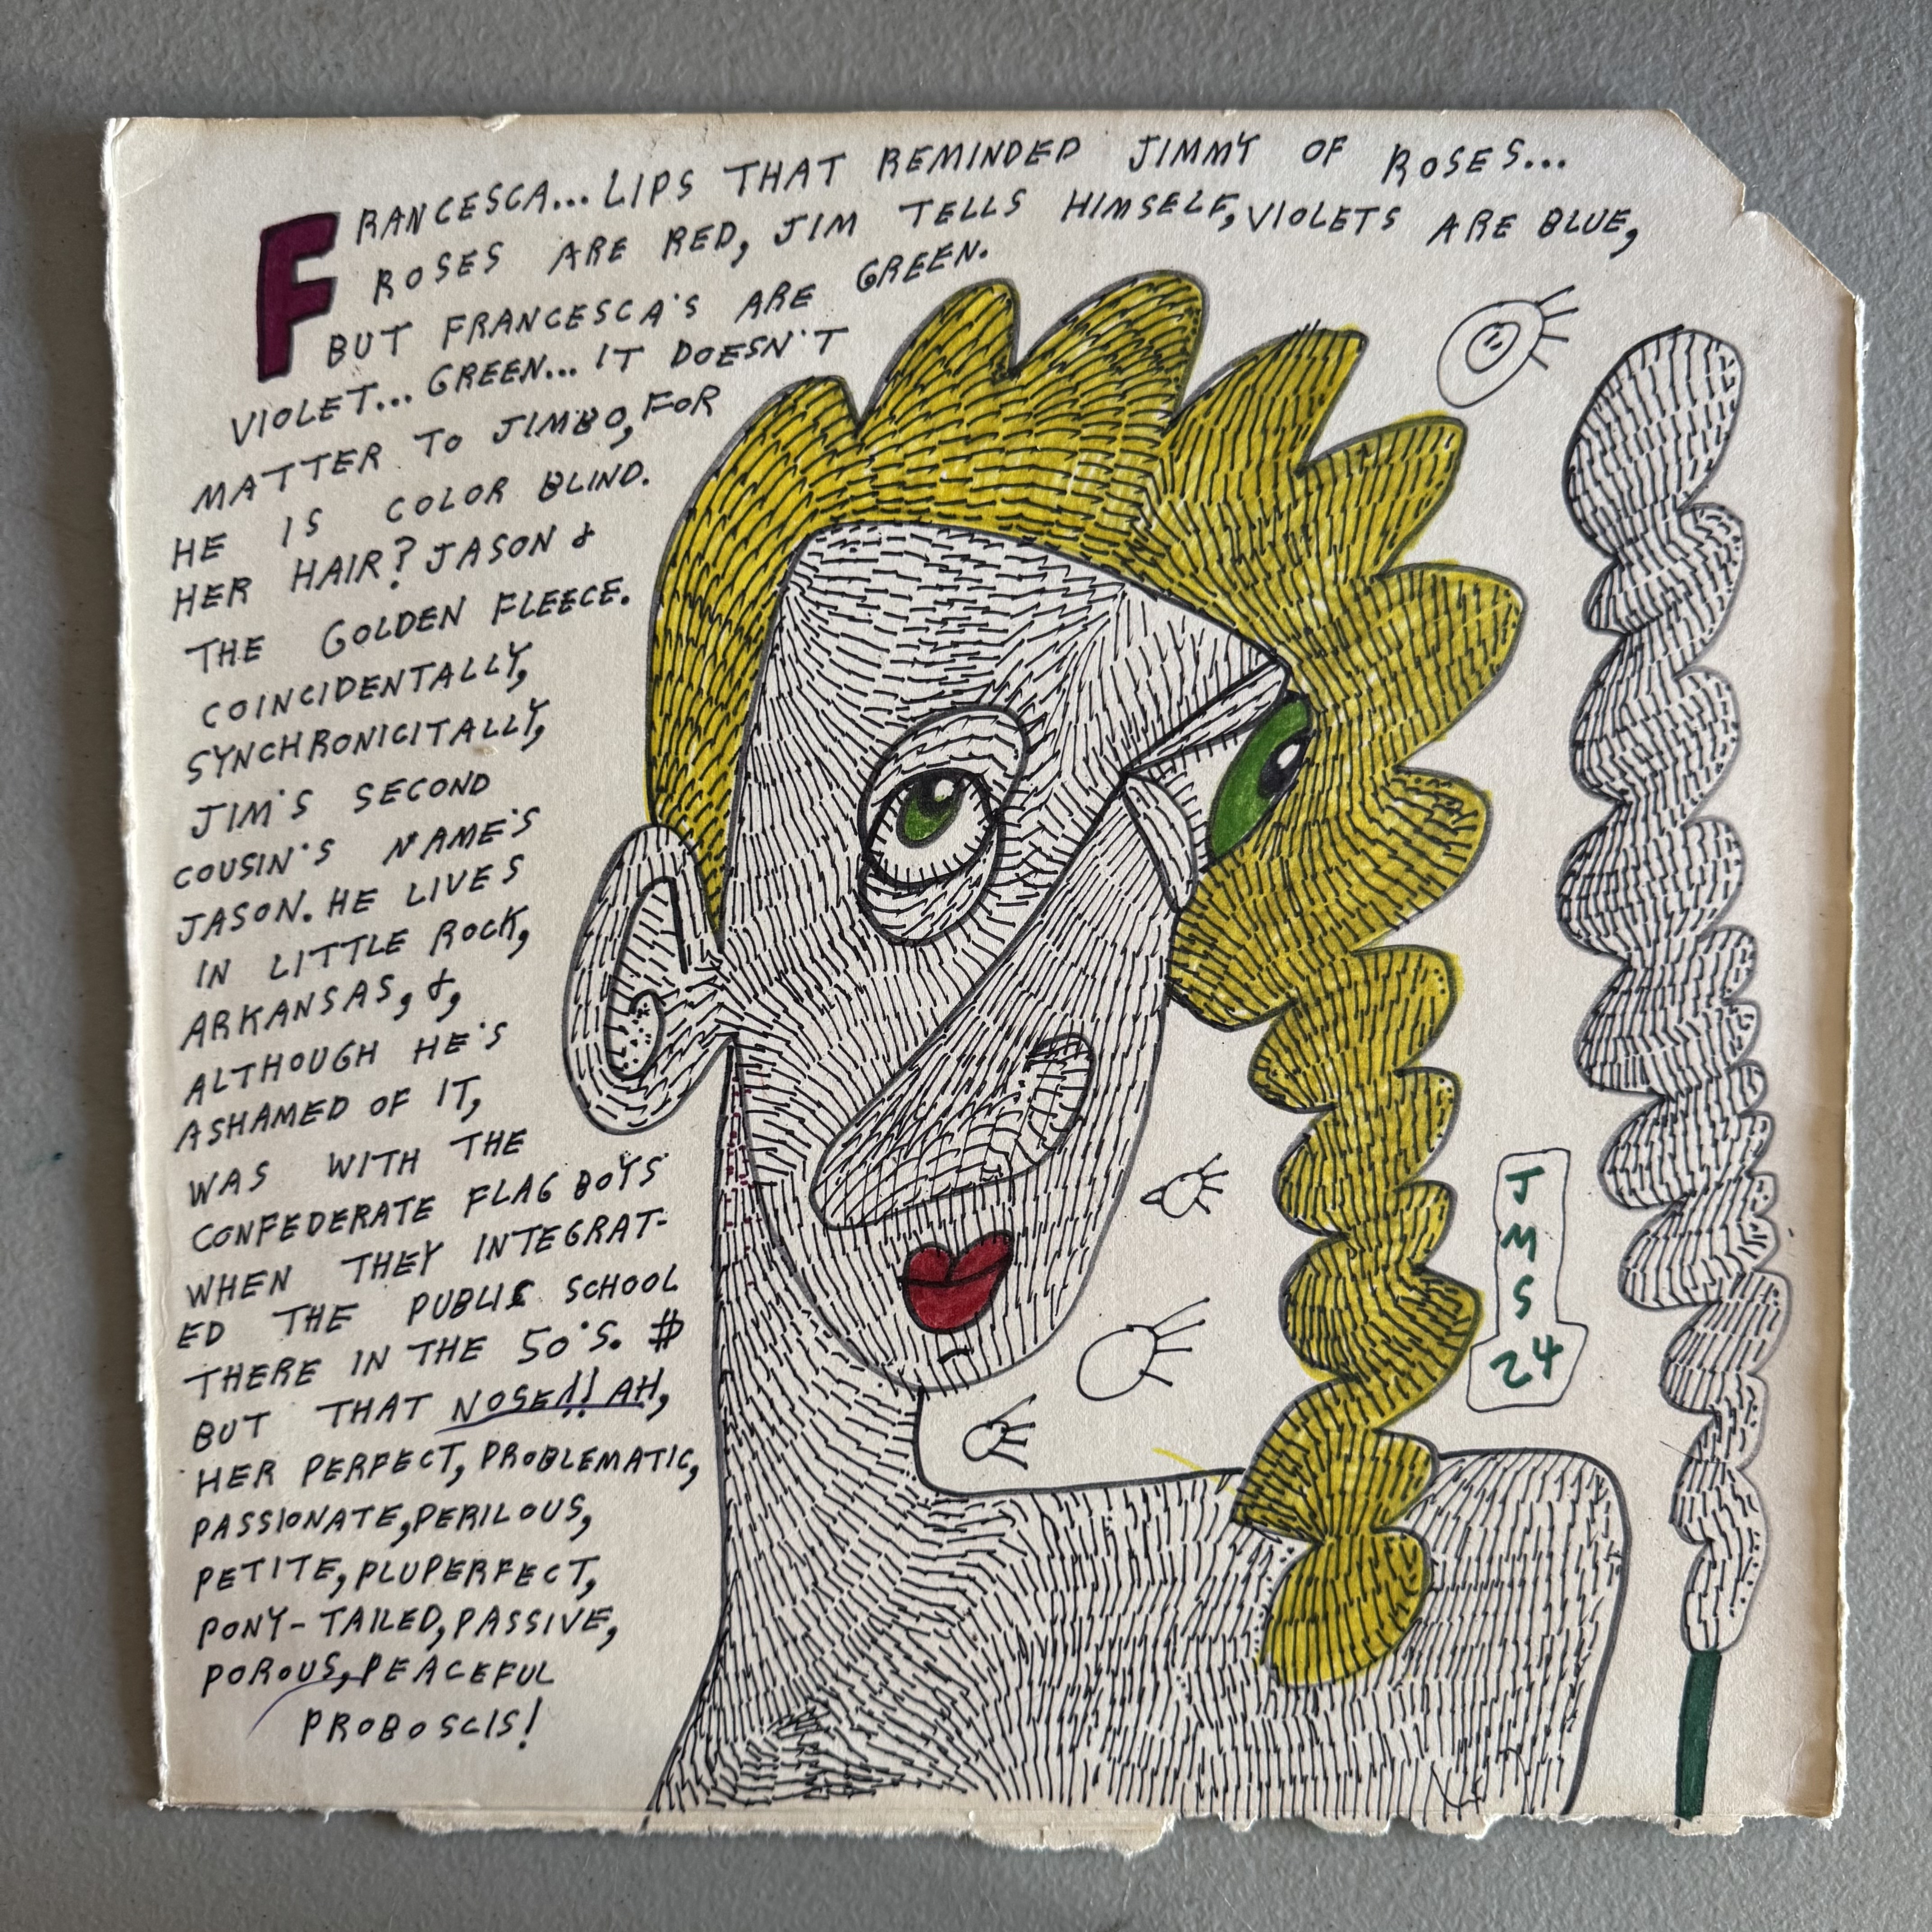 FRANCESCA... LIPS THAT REMINDED JIMMY OF ROSES...
ROSES ARE RED, JIM TELLS HIMSELF, VIOLETS ARE BLUE,
BUT FRANCESCA'S ARE GREEN.
VIOLET... GREEN... IT DOESN'T
MATTER TO JIMBO, FOR
HE IS COLOR BLIND.
HER HAIR? JASON &
THE GOLDEN FLEECE.
COINCIDENTALLY,
SYNCHRONICITALLY,
JIM'S SECOND
COUSIN'S NAME'S
JASON. HE LIVES
IN LITTLE ROCK,
ARKANSAS, &,
ALTHOUGH HE'S
ASHAMED OF IT,
WAS WITH THE
CONFEDERATE FLAG BOYS
WHEN THEY INTEGRAT-
ED THE PUBLIC SCHOOL
THERE IN THE 50'S. #
BUT THAT NOSE!! AH,
HER PERFECT, PROBLEMATIC,
PASSIONATE, PERILOUS,
PETITE, PLUPERFECT,
PONY-TAILED, PASSIVE,
POROUS, PEACEFUL
PROBOSCIS!
J
M
S
24